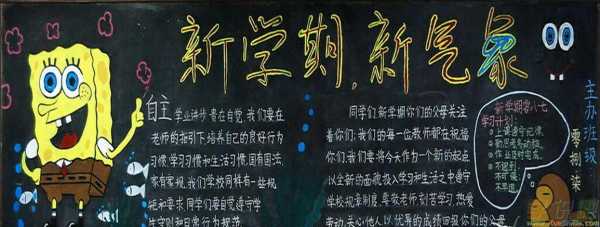 新学期,新气象
自主 学业进步 贵在自觉,我们要在
老师的指引下,培养自己的良好行为
习惯,学习习惯和生活习惯,国有国法,
家有家规,我们学校同样有一些规
矩和要求,同学们要自觉遵守学
生守则和日常行为规范.
同学们,新学期你们的父母关注
着你们,我们的每一位教师都在祝福
你们,我们要将今天作为一个新的起点
以全新的面貌,投入学习和生活之中,遵守
学校规章制度,尊敬老师,刻苦学习,热爱
劳动,关心他人,以优异的成绩回报你们的父母
新学期零八七
学习计划:
上课遵守纪律
作业按时完成
不迟到
不早退
主办班级
零捌柒